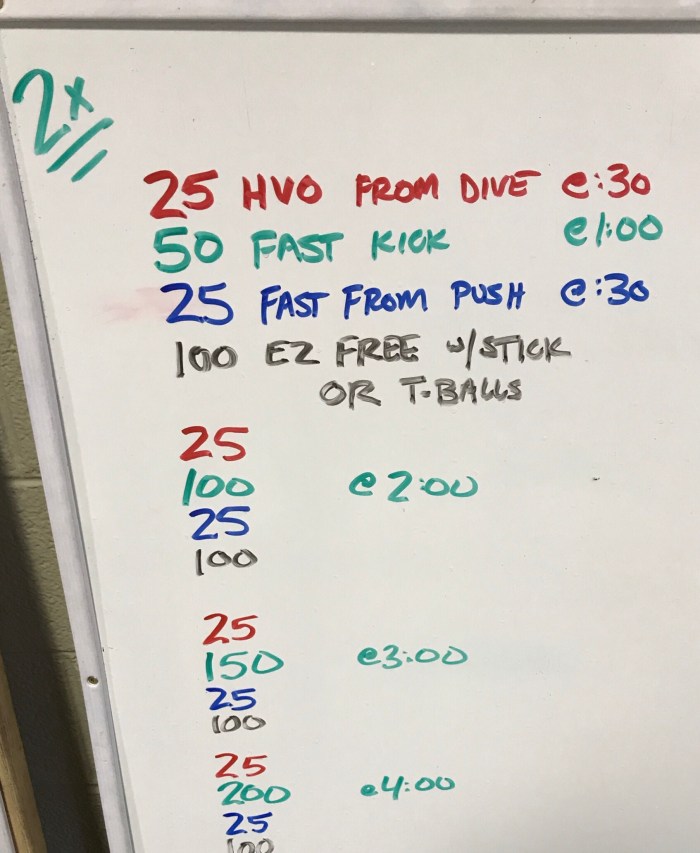 2x
25 HVO FROM DIVE @:30
50 FAST KICK @1:00
25 FAST FROM PUSH @:30
100 EZ FREE w/STICK
OR T-BALLS
25
100 @2:00
25
100
25
150 @3:00
25
100
25
200 @4:00
25
100